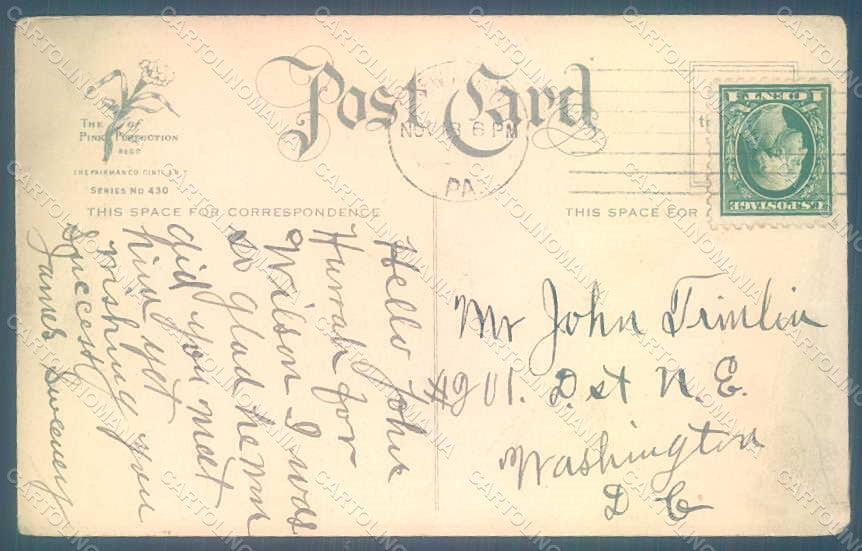 Post Card
THE PINK OF PERFECTION
REGD
THE FAIRMAN CO. CINTI. & N.Y.
SERIES NO 430
THIS SPACE FOR CORRESPONDENCE
THIS SPACE FOR
NOV 13 6 PM
PA.
U.S. POSTAGE
1 CENT 1
Hello John
Hurrah for
Wilson I was
so glad he won
did you meet
him yet
Wishing you
Success
James Sweeney
Mr John Timlin
D. st N. E.
Washington
D C
CARTOLINOMANIA